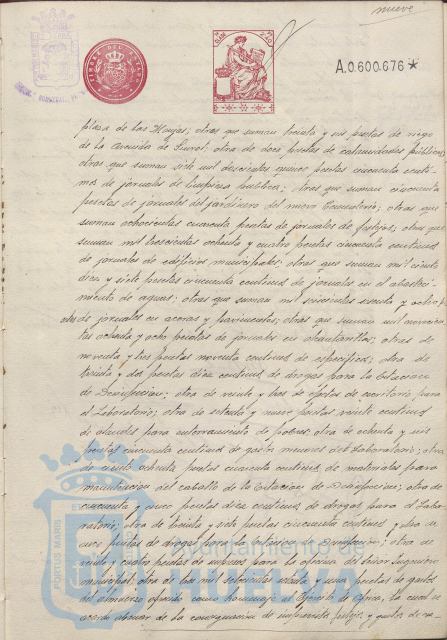 nueve
A.0.600.676
plaza de las Monjas; otras que suman treinta y seis pesetas de riego
de la Avenida de Seoral; otra de doce pesetas de calamidades públicas;
otras que suman siete mil doscientas quince pesetas cincuenta cénti-
mos de jornales de limpieza pública; otras que suman cincuenta
pesetas de jornales del jardinero del nuevo Cementerio; otras que
suman ochocientas cuarenta pesetas de jornales de festejos; otras que
suman mil trescientas ochenta y cuatro pesetas cincuenta céntimos
de jornales de edificios municipales; otras que suman mil ciento
diez y siete pesetas cincuenta céntimos de jornales en el abasteci-
miento de aguas; otras que suman mil seiscientas sesenta y ocho
de jornales en aceras y pavimentos; otras que suman mil novecien-
tas ochenta y ocho pesetas de jornales en alcantarillas; otras de
noventa y tres pesetas noventa céntimos de específicos; otra de
treinta y dos pesetas diez céntimos de drogas para la Estación
de Desinfección; otra de veinte y tres de efectos de escritorio para
el Laboratorio; otra de setenta y nueve pesetas veinte céntimos
de ataudes para enterramiento de pobres; otra de ochenta y seis
pesetas cincuenta céntimos de gastos menores del Laboratorio; otra
de ciento ochenta pesetas cuarenta céntimos de materiales para
manutención del caballo de la Estación de Desinfección; otra de
cincuenta y cinco pesetas diez céntimos de drogas para el Labo-
ratorio; otra de treinta y siete pesetas cincuenta céntimos y otra de
once pesetas de drogas para la Estación de Desinfección; otra de
veinte y cuatro pesetas de impresos para la oficina del Señor Ingeniero
municipal; otra de tres mil setecientas ochenta y una pesetas de gastos
del almuerzo ofrecido como homenaje al Ejército de África, la cual se
acordó abonar de la consignación de imprevistos, festejos y gastos de re
Ayuntamiento de
PORTUS MARIS